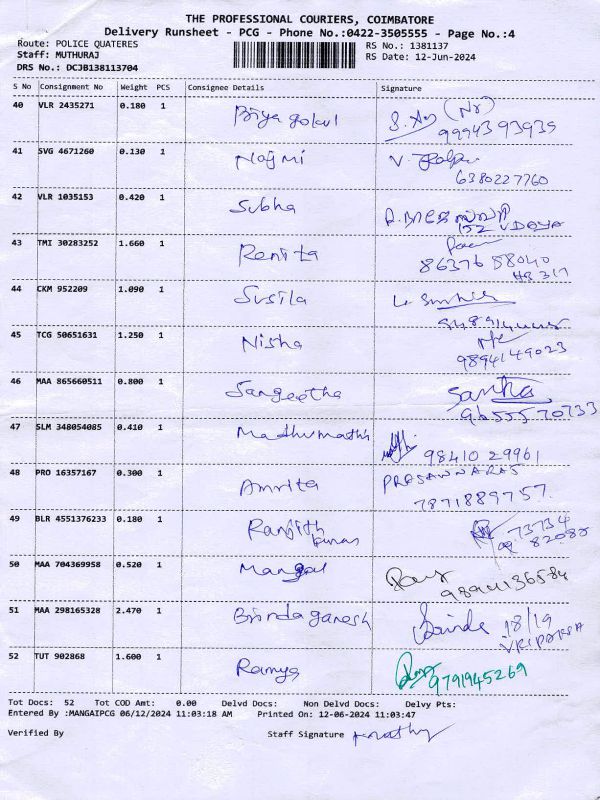 THE PROFESSIONAL COURIERS, COIMBATORE
Delivery Runsheet - PCG - Phone No.:0422-3505555 - Page No.:4
Route: POLICE QUATERES
Staff: MUTHURAJ
DRS No.: DCJB138113704
RS No.: 1381137
RS Date: 12-Jun-2024
S No Consignment No Weight PCS Consignee Details Signature
40 VLR 2435271 0.180 1 Priya gokul
99943 93935
41 SVG 4671260 0.130 1 Najmi
6380227760
42 VLR 1035153 0.420 1 Subha
152 UDAYA
43 TMI 30283252 1.660 1 Renita
86376 58040
HB 317
44 CKM 952209 1.090 1 Susila
45 TCG 50651631 1.250 1 Nisha
9894149023
46 MAA 865660511 0.800 1 Sangeetha
9655570733
47 SLM 348054085 0.410 1 Madhumathi
98410 29961
48 PRO 16357167 0.300 1 Amrita PRASANNARAS
7871889757.
49 BLR 4551376233 0.180 1 Ranjith kumar
73734
82082
50 MAA 704369958 0.520 1 Mangal
9894136584
51 MAA 298165328 2.470 1 Brinda ganesh Brinda 18/19
52 TUT 902868 1.600 1 Ramya
9791945269
Tot Docs: 52 Tot COD Amt: 0.00 Delvd Docs: Non Delvd Docs: Delvy Pts:
Entered By :MANGAIPCG 06/12/2024 11:03:18 AM Printed On: 12-06-2024 11:03:47
Verified By Staff Signature